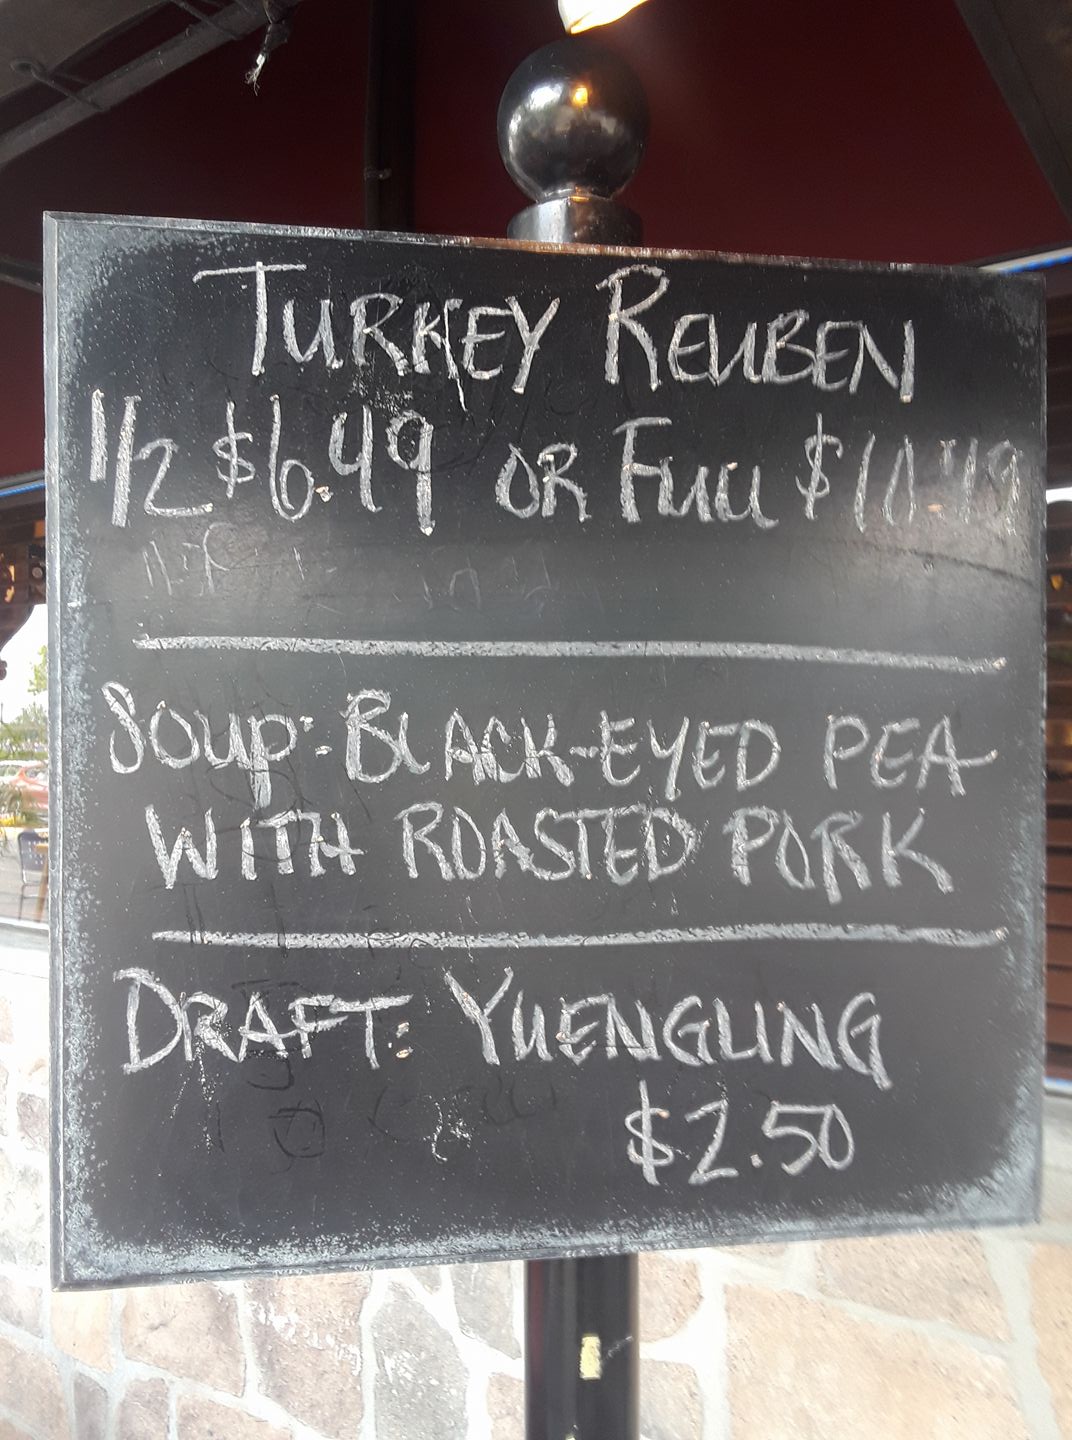 TURKEY REUBEN
1/2 $6.49 OR FULL
SOUP: BLACK-EYED PEA
WITH ROASTED PORK
DRAFT: YUENGLING
$2.50